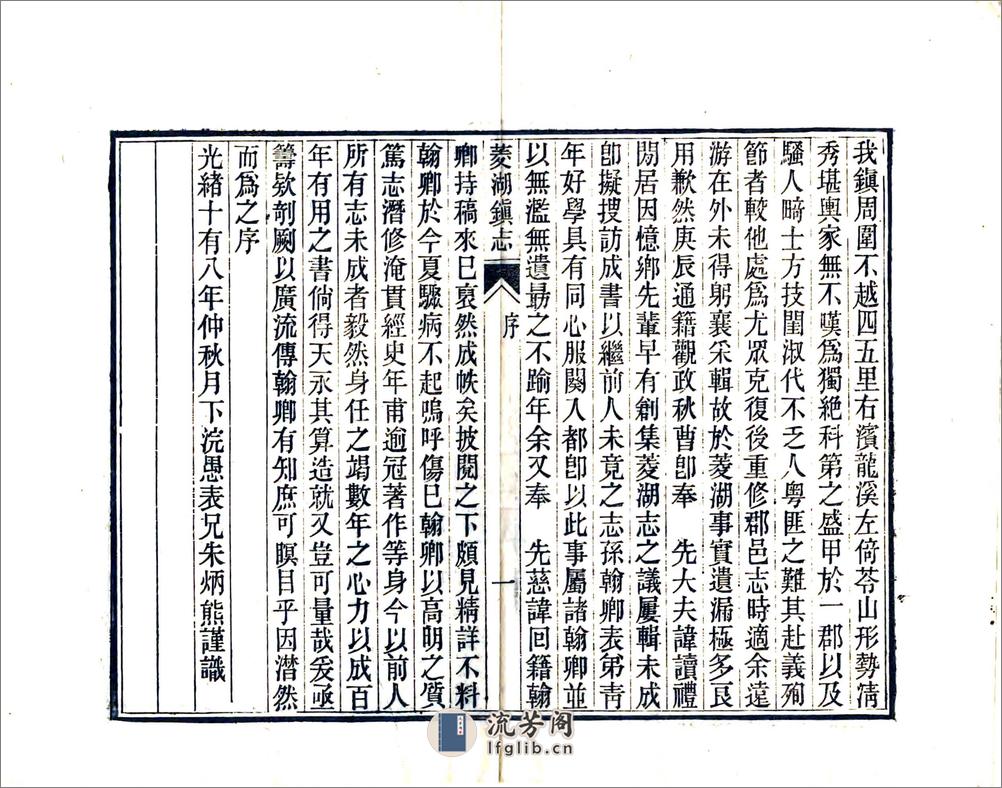 我鎭周圍不越四五里右濱龍溪左倚苓山形勢淸
秀堪輿家無不嘆爲獨絶科第之盛甲於一郡以及
騷人畸士方技閨淑代不乏人粤匪之難其赴義殉
節者較他處爲尤眾克復後重修郡邑志時適余遠
游在外未得躬襄采輯故於菱湖事實遺漏極多良
用歉然庚辰通籍觀政秋曹卽奉　先大夫諱讀禮
閒居因憶鄉先輩早有創集菱湖志之議屢輯未成
卽擬搜訪成書以繼前人未竟之志孫翰卿表弟靑
年好學具有同心服闋入都卽以此事屬諸翰卿並
以無濫無遺勗之不踰年余又奉　先慈諱回籍翰
菱湖鎭志　序　一
卿持稿來已裒然成帙矣披閱之下頗見精詳不料
翰卿於今夏驟病不起嗚呼傷已翰卿以高明之質
篤志潛修淹貫經史年甫逾冠著作等身今以前人
所有志未成者毅然身任之竭數年之心力以成百
年有用之書倘得天永其算造就又豈可量哉爰亟
籌欵剞劂以廣流傳翰卿有知庶可瞑目乎因潸然
而爲之序
光緒十有八年仲秋月下浣愚表兄朱炳熊謹識
流芳阁
lfglib.cn